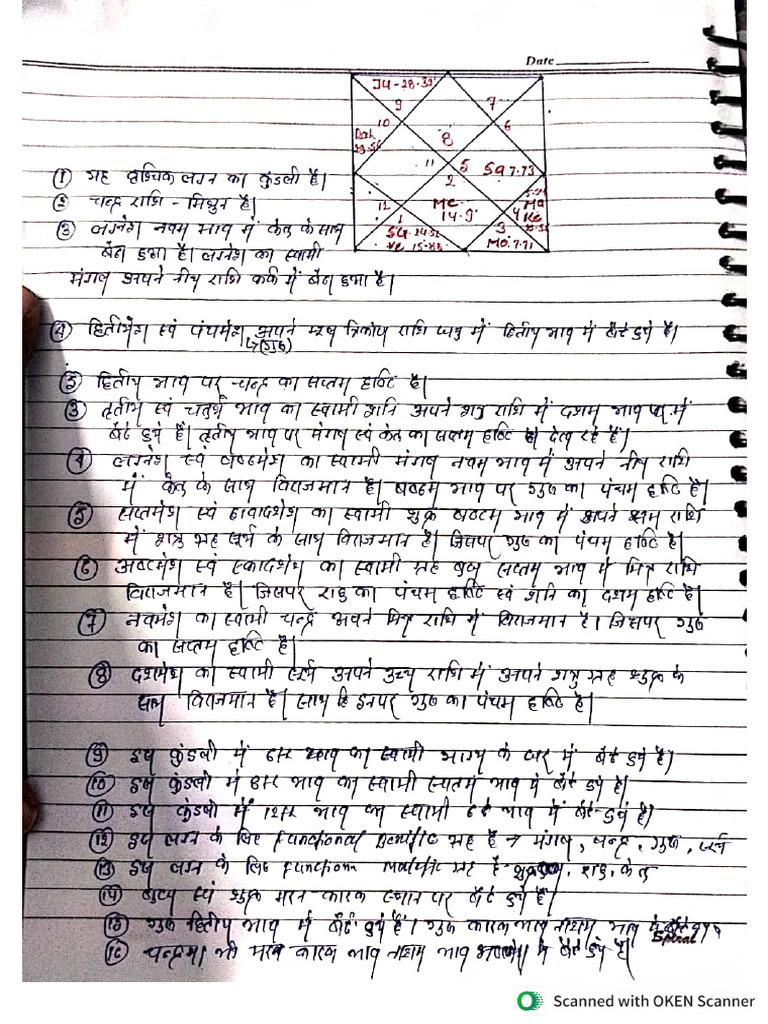 Date
JU-28.39
9
7
10
6
8
11
5
Sa 7.73
2
12
Me
14.9
1
4
Ke
3
Mo. 7.71
① यह वृश्चिक लग्न का कुंडली है।
② चन्द्र राशि - मिथुन है।
③ लग्नेश नवम भाव में केतु के साथ
बैठा हुआ है। लग्नेश का स्वामी
मंगल अपने नीच राशि कर्क में बैठा हुआ है।
④ द्वितीयेश एवं पंचमेश अपने मूल त्रिकोण राशि धनु में द्वितीय भाव में बैठे हुये है।
↳(गुरु)
द्वितीय भाव पर चन्द्र का सप्तम दृष्टि है।
③ तृतीय एवं चतुर्थ भाव का स्वामी शनि अपने शत्रु राशि में दशम भाव में
बैठे हुये है। तृतीय भाव पर मंगल एवं केतु का सप्तम दृष्टि देख रहे है।
④ लग्नेश एवं षष्टमेश का स्वामी मंगल नवम भाव में अपने नीच राशि
में केतु के साथ विराजमान है। षष्टम भाव पर गुरु का पंचम दृष्टि है।
⑤ सप्तमेश एवं द्वादशेश का स्वामी शुक्र षष्टम भाव में अपने सम राशि
में शत्रु ग्रह सूर्य के साथ विराजमान है। जिसपर गुरु का पंचम दृष्टि है।
⑥ अष्टमेश एवं एकादशेश का स्वामी ग्रह बुध सप्तम भाव में मित्र राशि
विराजमान है। जिसपर राहु का पंचम दृष्टि एवं शनि का दशम दृष्टि है।
⑦ नवमेश का स्वामी चन्द्र अपने मित्र राशि में विराजमान है। जिसपर गुरु
का सप्तम दृष्टि है।
⑧ दशमेश का स्वामी सूर्य अपने उच्च राशि में अपने शत्रु ग्रह शुक्र के
साथ विराजमान है। साथ हि इनपर गुरु का पंचम दृष्टि है।
⑨ इस कुंडली में 6th भाव का स्वामी भाग्य के घर में बैठे हुये है।
⑩ इस कुंडली में 8th भाव का स्वामी सप्तम भाव में बैठे हुये है।
⑪ इस कुंडली में 12th भाव का स्वामी 6th भाव में बैठे हुये है।
⑫ इस लग्न के लिए Functional Benific ग्रह है → मंगल, चन्द्र, गुरु, सूर्य
⑬ इस लग्न के लिए Function Malefic ग्रह है - शुक्र, राहु, केतु
⑭ बुध एवं शुक्र मरन कारक स्थान पर बैठे हुये है।
⑮ गुरु द्वितीय भाव में बैठे हुये है। गुरु कारक भाव नाशाय भाव में बैठे
Spiral
⑯ चन्द्रमा भी मरन कारक भाव नाशाय भाव में बैठे हुये है।
Scanned with OKEN Scanner